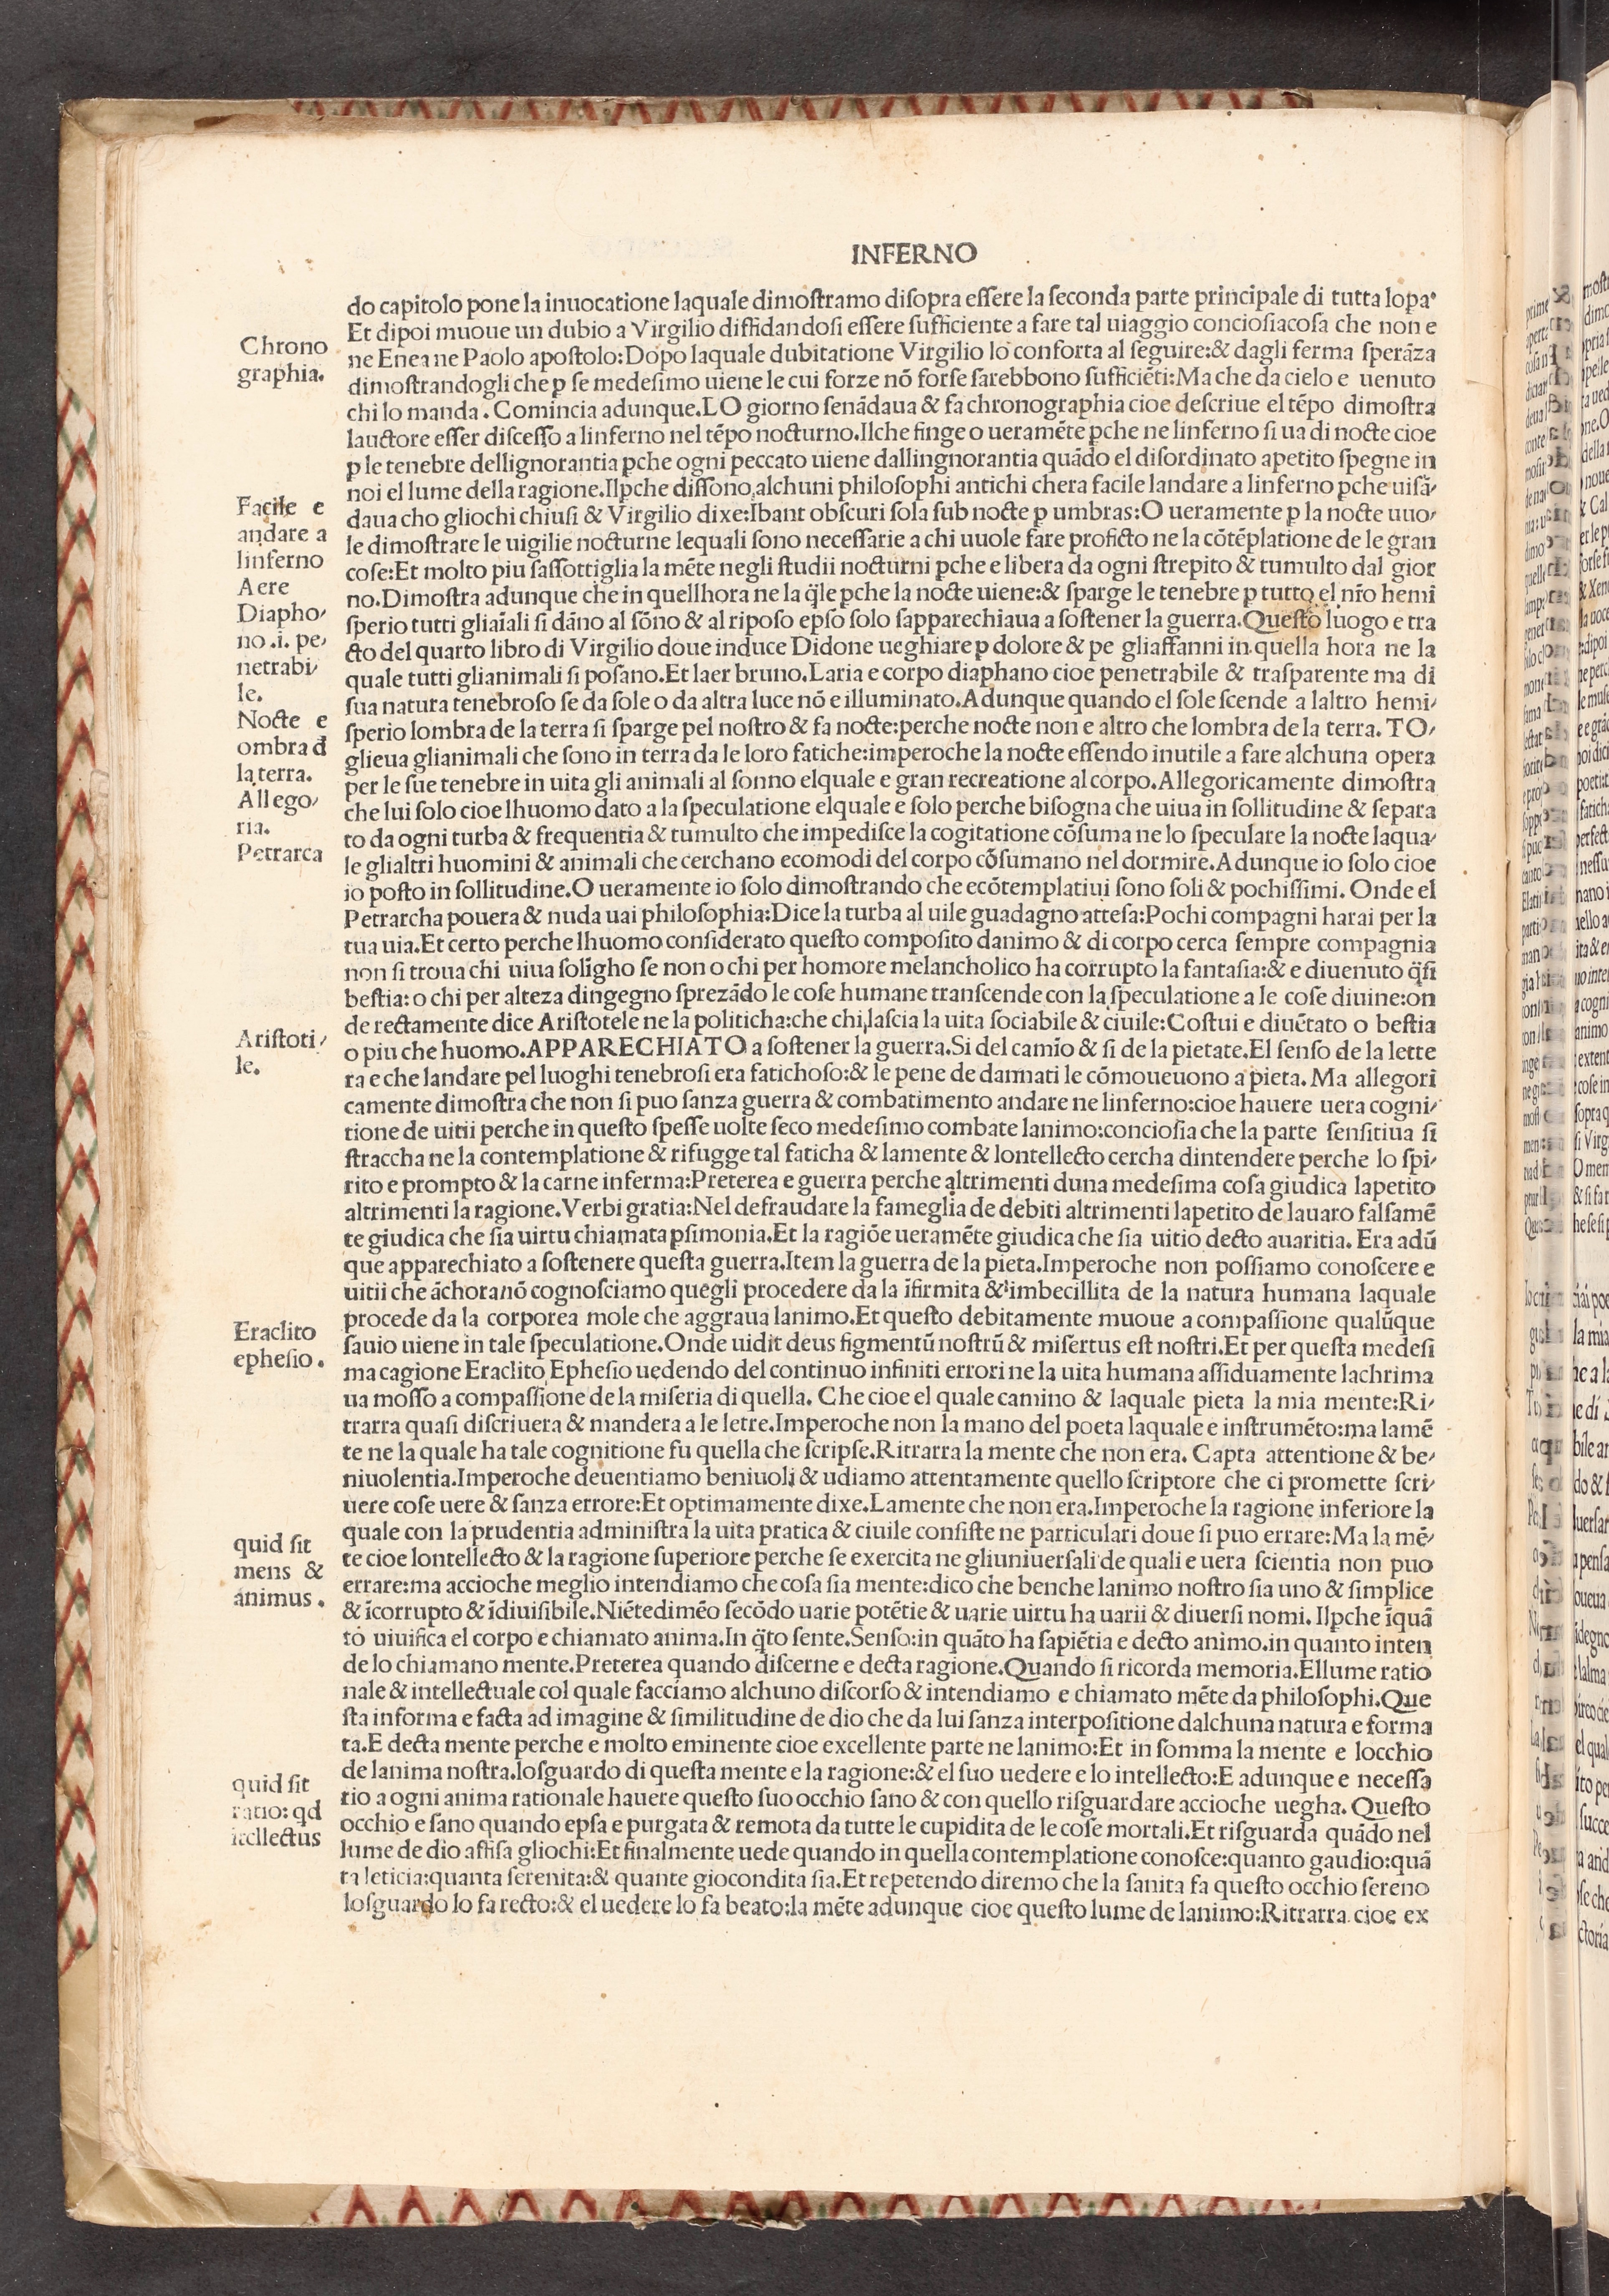 INFERNO
do capitolo pone la inuocatione laquale dimoſtramo diſopra eſſere la ſeconda parte principale di tutta lopa
Et dipoi muoue un dubio a Virgilio diffidandoſi eſſere ſufficiente a fare tal uiaggio concioſiacoſa che non e
ne Enea ne Paolo apoſtolo:Dopo laquale dubitatione Virgilio lo conforta al ſeguire:& dagli ferma ſperāza
dimoſtrandogli che ꝑ ſe medeſimo uiene le cui forze nō forſe ſarebbono ſufficiēti:Ma che da cielo e uenuto
chi lo manda.Comincia adunque.LO giorno ſenādaua & fa chronographia cioe deſcriue el tēpo dimoſtra
lauctore eſſer diſceſſo a linferno nel tēpo nocturno.Ilche finge o ueramēte ꝑche ne linferno ſi ua di nocte cioe
ꝑ le tenebre dellignorantia ꝑche ogni peccato uiene dallingnorantia quādo el diſordinato apetito ſpegne in
noi el lume della ragione.Ilꝑche diſſono alchuni philoſophi antichi chera facile landare a linferno ꝑche uiſā-
daua cho gliochi chiuſi & Virgilio dixe:Ibant obſcuri ſola ſub nocte ꝑ umbras:O ueramente ꝑ la nocte uuo-
le dimoſtrare le uigilie nocturne lequali ſono neceſſarie a chi uuole fare proficto ne la cōtēplatione de le gran
coſe:Et molto piu ſaſſottiglia la mēte negli ſtudii nocturni ꝑche e libera da ogni ſtrepito & tumulto dal gior
no.Dimoſtra adunque che in quellhora ne la q̄le ꝑche la nocte uiene:& ſparge le tenebre ꝑ tutto el nr̄o hemi
ſperio tutti gliaīali ſi dāno al ſōno & al ripoſo epſo ſolo ſapparechiaua a ſoſtener la guerra.Queſto luogo e tra
cto del quarto libro di Virgilio doue induce Didone ueghiare ꝑ dolore & pe gliaffanni in quella hora ne la
quale tutti glianimali ſi poſano.Et laer bruno.Laria e corpo diaphano cioe penetrabile & traſparente ma di
ſua natura tenebroſo ſe da ſole o da altra luce nō e illuminato.Adunque quando el ſole ſcende a laltro hemi-
ſperio lombra de la terra ſi ſparge pel noſtro & fa nocte:perche nocte non e altro che lombra de la terra. TO-
glieua glianimali che ſono in terra da le loro fatiche:imperoche la nocte eſſendo inutile a fare alchuna opera
per le ſue tenebre in uita gli animali al ſonno elquale e gran recreatione al corpo.Allegoricamente dimoſtra
che lui ſolo cioe lhuomo dato a la ſpeculatione elquale e ſolo perche biſogna che uiua in ſollitudine & ſepara
to da ogni turba & frequentia & tumulto che impediſce la cogitatione cōſuma ne lo ſpeculare la nocte laqua-
le glialtri huomini & animali che cerchano ecomodi del corpo cōſumano nel dormire.Adunque io ſolo cioe
io poſto in ſollitudine.O ueramente io ſolo dimoſtrando che ecōtemplatiui ſono ſoli & pochiſſimi. Onde el
Petrarcha pouera & nuda uai philoſophia:Dice la turba al uile guadagno atteſa:Pochi compagni harai per la
tua uia.Et certo perche lhuomo conſiderato queſto compoſito danimo & di corpo cerca ſempre compagnia
non ſi troua chi uiua ſolīgho ſe non o chi per homore melancholico ha corrupto la fantaſia:& e diuenuto q̄ſi
beſtia: o chi per alteza dingegno ſprezādo le coſe humane tranſcende con la ſpeculatione a le coſe diuine:on
de rectamente dice Ariſtotele ne la politicha:che chi laſcia la uita ſociabile & ciuile:Coſtui e diuētato o beſtia
o piu che huomo.APPARECHIATO a ſoſtener la guerra.Si del camīo & ſi de la pietate.El ſenſo de la lette
ra e che landare pel luoghi tenebroſi era fatichoſo:& le pene de dannati le cōmoueuono a pieta. Ma allegori
camente dimoſtra che non ſi puo ſanza guerra & combatimento andare ne linferno:cioe hauere uera cogni-
tione de uitii perche in queſto ſpeſſe uolte ſeco medeſimo combate lanimo:concioſia che la parte ſenſitiua ſi
ſtraccha ne la contemplatione & rifugge tal faticha & lamente & lontellecto cercha dintendere perche lo ſpi-
rito e prompto & la carne inferma:Preterea e guerra perche altrimenti duna medeſima coſa giudica lapetito
altrimenti la ragione.Verbi gratia:Nel defraudare la fameglia de debiti altrimenti lapetito de lauaro falſamē
te giudica che ſia uirtu chiamata pſimonia.Et la ragiōe ueramēte giudica che ſia uitio decto auaritia. Era adū
que apparechiato a ſoſtenere queſta guerra.Item la guerra de la pieta.Imperoche non poſſiamo conoſcere e
uitii che āchora nō cognoſciamo quegli procedere da la īfirmita & imbecillita de la natura humana laquale
procede da la corporea mole che aggraua lanimo.Et queſto debitamente muoue a compaſſione qualūque
ſauio uiene in tale ſpeculatione.Onde uidit deus figmentū noſtrū & miſertus eſt noſtri.Et per queſta medeſi
ma cagione Eraclito Epheſio uedendo del continuo infiniti errori ne la uita humana aſſiduamente lachrima
ua moſſo a compaſſione de la miſeria di quella. Che cioe el quale camino & laquale pieta la mia mente:Ri-
trarra quaſi diſcriuera & mandera a le letre.Imperoche non la mano del poeta laquale e inſtrumēto:ma lamē
te ne la quale ha tale cognitione fu quella che ſcripſe.Ritrarra la mente che non era. Capta attentione & be-
niuolentia.Imperoche deuentiamo beniuoli & udiamo attentamente quello ſcriptore che ci promette ſcri-
uere coſe uere & ſanza errore:Et optimamente dixe.Lamente che non era.Imperoche la ragione inferiore la
quale con la prudentia adminiſtra la uita pratica & ciuile conſiſte ne particulari doue ſi puo errare:Ma la mē-
te cioe lontellecto & la ragione ſuperiore perche ſe exercita ne gliuniuerſali de quali e uera ſcientia non puo
errare:ma accioche meglio intendiamo che coſa ſia mente:dico che benche lanimo noſtro ſia uno & ſimplice
& īcorrupto & īdiuiſibile.Niētedimēo ſecōdo uarie potētie & uarie uirtu ha uarii & diuerſi nomi. Ilꝑche īquā
to uiuifica el corpo e chiamato anima.In q̄to ſente.Senſo:in quāto ha ſapiētia e decto animo.in quanto inten
de lo chiamano mente.Preterea quando diſcerne e decta ragione.Quando ſi ricorda memoria.Ellume ratio
nale & intellectuale col quale facciamo alchuno diſcorſo & intendiamo e chiamato mēte da philoſophi.Que
ſta informa e facta ad imagine & ſimilitudine de dio che da lui ſanza interpoſitione dalchuna natura e forma
ta.E decta mente perche e molto eminente cioe excellente parte ne lanimo:Et in ſomma la mente e locchio
de lanima noſtra.loſguardo di queſta mente e la ragione:& el ſuo uedere e lo intellecto:E adunque e neceſſa
rio a ogni anima rationale hauere queſto ſuo occhio ſano & con quello riſguardare accioche uegha. Queſto
occhio e ſano quando epſa e purgata & remota da tutte le cupidita de le coſe mortali.Et riſguarda quādo nel
lume de dio affiſa gliochi:Et finalmente uede quando in quella contemplatione conoſce:quanto gaudio:quā
ta leticia:quanta ſerenita:& quante giocondita ſia.Et repetendo diremo che la ſanita fa queſto occhio ſereno
loſguardo lo fa recto:& el uedere lo fa beato:la mēte adunque cioe queſto lume de lanimo:Ritrarra cioe ex
Chrono
graphia.
Facile e
andare a
linferno
Aere
Diapho-
no .i. pe-
netrabi-
le.
Nocte e
ombra d̄
la terra.
Allego-
ria.
Petrarca
Ariſtoti-
le.
Eraclito
epheſio.
quid ſit
mens &
animus.
quid ſit
ratio: qd
ītellectus